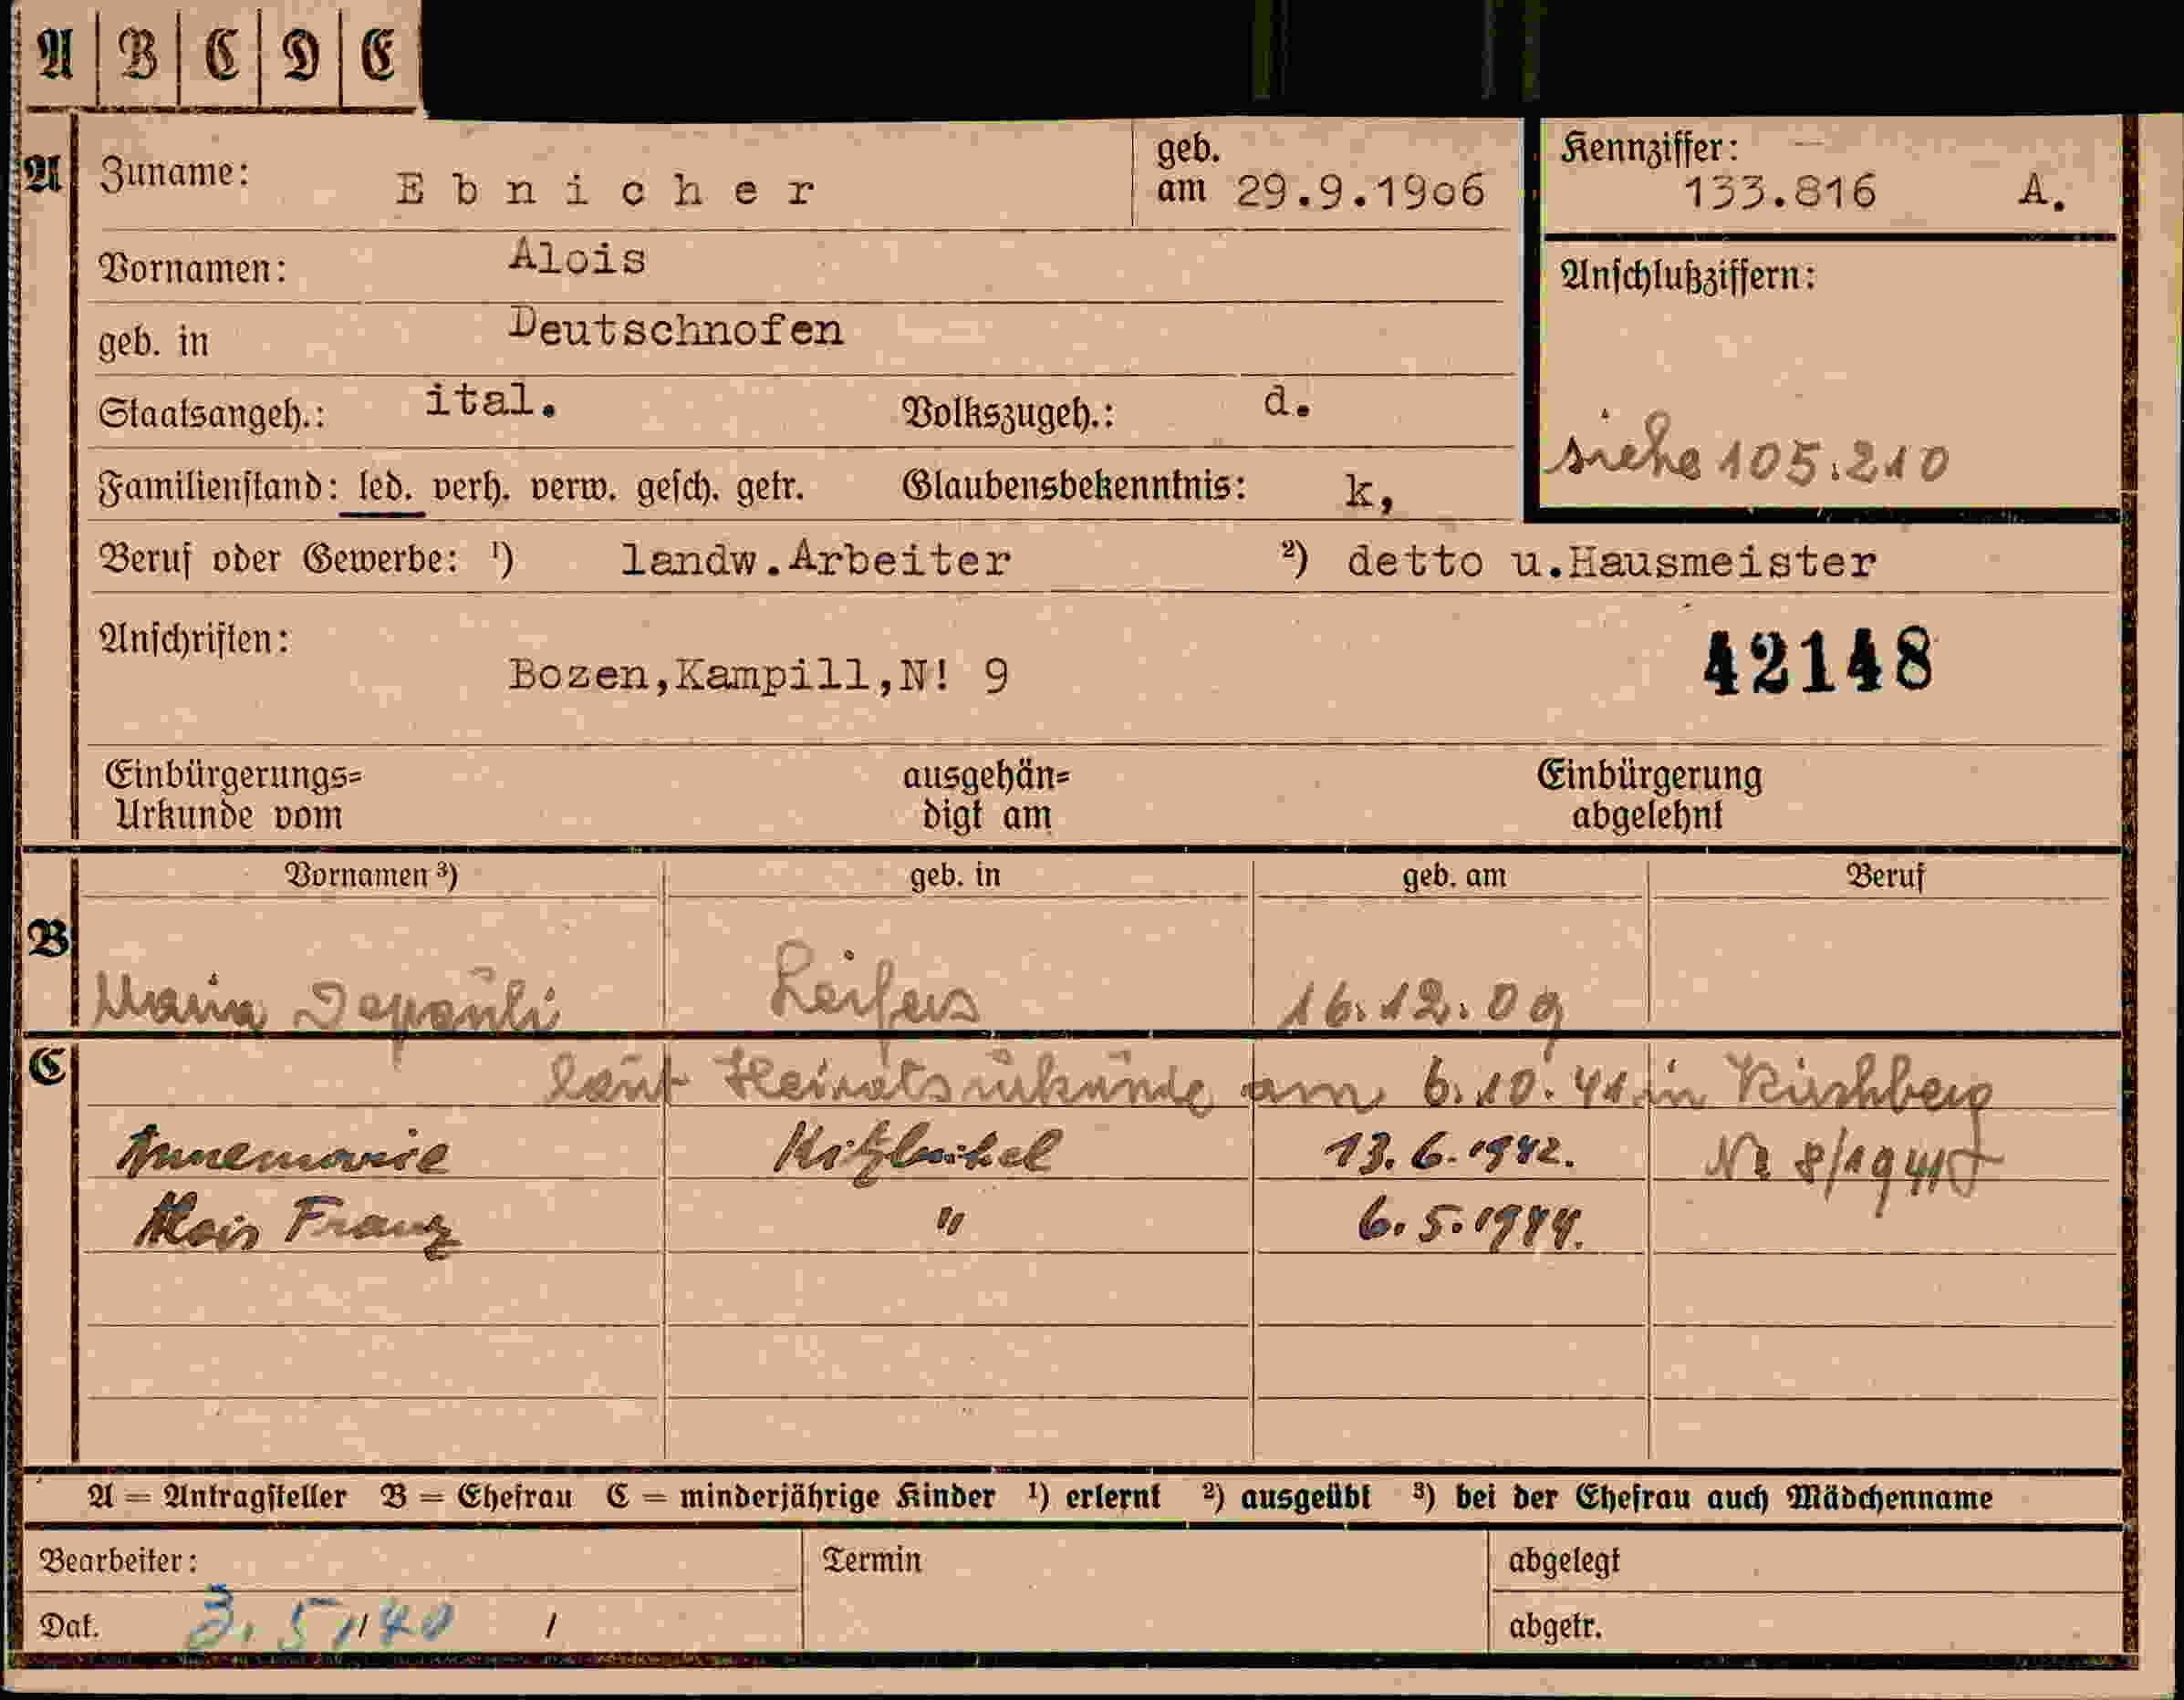 A B C D E
A Zuname: Ebnicher geb. am 29.9.1906 Kennziffer: 133.816 A.
Vornamen: Alois Anschlußziffern:
geb. in Deutschnofen
Staatsangeh.: ital. Volkszugeh.: d.
siehe 105.210
Familienstand: led. verh. verw. gesch. getr. Glaubensbekenntnis: k,
Beruf oder Gewerbe: ¹) landw.Arbeiter ²) detto u.Hausmeister
Anschriften: Bozen,Kampill,N! 9 42148
Einbürgerungs= ausgehän= Einbürgerung
Urkunde vom digt am abgelehnt
Vornamen ³) geb. in geb. am Beruf
B Maria Depauli Leifers 16.12.09
C laut Heiratsurkunde am 6.10.41 in Kirchberg
Annemarie Kitzbühel 13.6.1942. Nr 8/1941
Alois Franz " 6.5.1944.
A = Antragsteller B = Ehefrau C = minderjährige Kinder ¹) erlernt ²) ausgeübt ³) bei der Ehefrau auch Mädchenname
Bearbeiter: Termin abgelegt
Dat. 3.5.40 / abgetr.